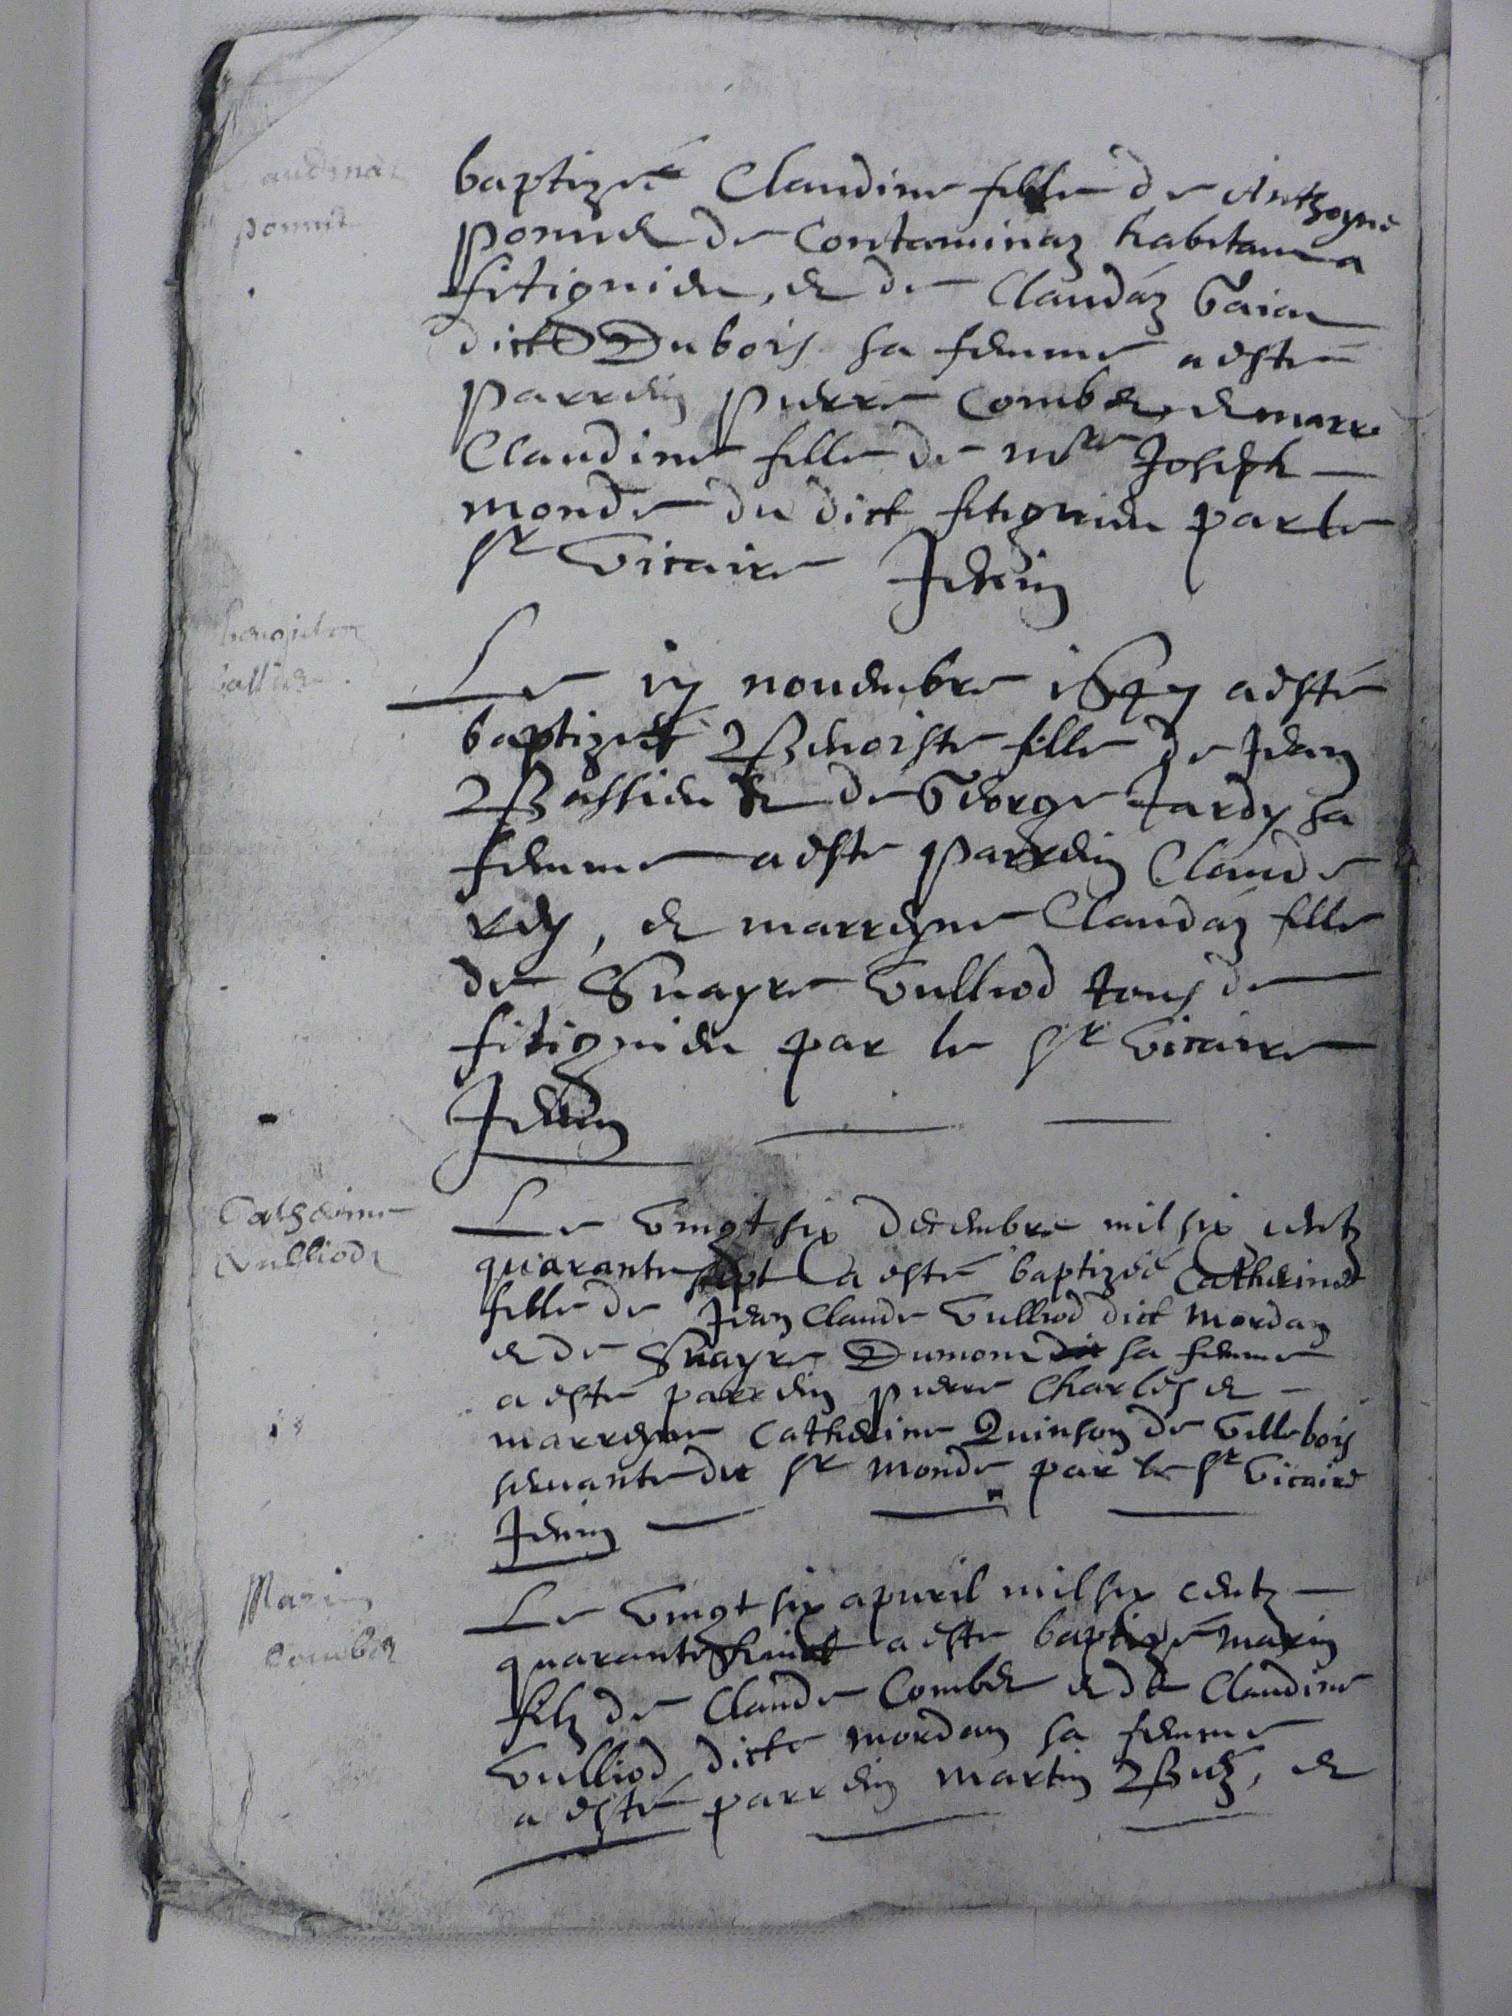 baptizée Claudine fille de Anthoyne
ponnet de Contaminaz habitant a
fitignieu, et de Claudaz
dicte Dubois sa femme a esté
parrein pierre Combet, et marre
Claudine fille de mre Joseph
monde du dict fitignieu par le
sr vicaire Jenin
Le novembre 1647 a esté
baptizée Benoiste fille de Jean
Bassieu et de George tardy sa
femme a este parrein Claude
rey, et marreyne Claudaz fille
de vulliod tous de
fitignieu par le sr vicaire
Jenin
Catherine
vulliode
Le vingt six decembre mil six centz
quarante sept a esté baptizée Catherine
fille de Jean Claude vulliod dict mordan
et de Dumont sa femme
a esté parrein pierre Charles et
marreyne Catherine Quinson de villebois
servante du sr monde par le sr vicaire
Jenin
Marin
Combet
Le vingt six apvril mil six centz
quarante huict a este baptizé marin
filz de Claude Combet et de Claudine
vulliod dicte mordan sa femme
a esté parrein martin et